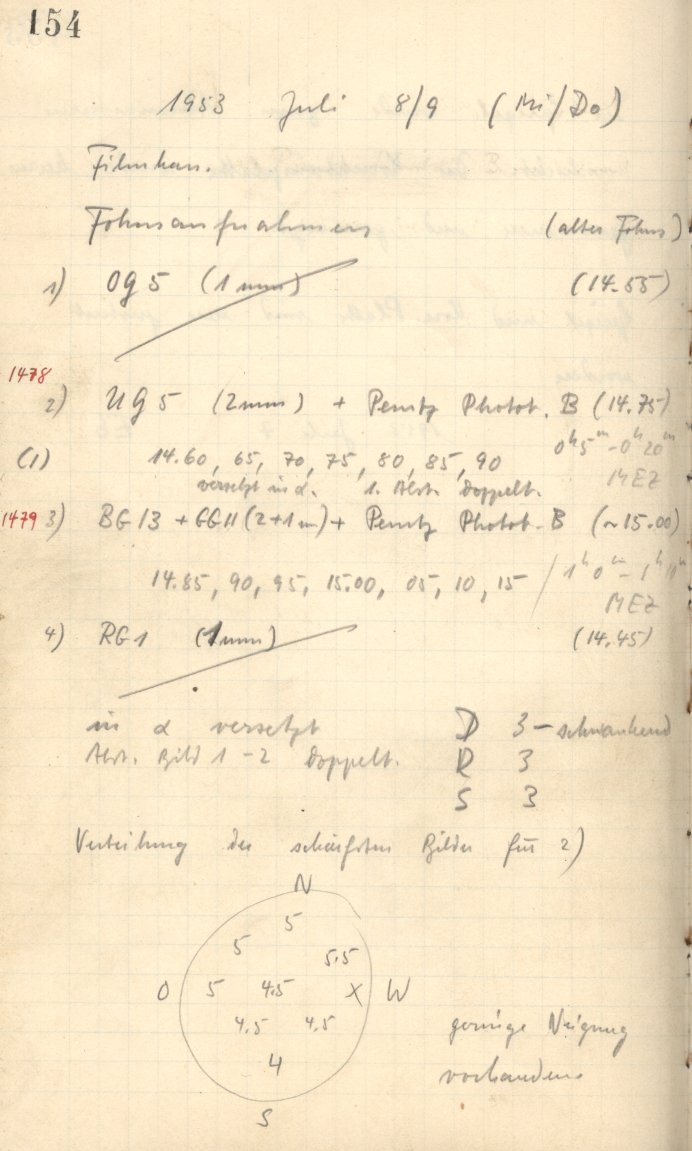 154
1953 Juli 8/9 (Mi/Do)
Filmkas.
Fokusaufnahmen (alter Fokus)
1) OG5 (1mm) (14.55)
1478
2) UG5 (2mm) + Perutz Photot. B (14.75)
(1) 14.60, 65, 70, 75, 80, 85, 90 0h5m-0h20m
versetzt in α. 1. Abst. doppelt. MEZ
1479 3) BG13 + GG11 (2+1m) + Perutz Photot. B (~15.00)
14.85, 90, 95, 15.00, 05, 10, 15 / 1h0m - 1h10m
MEZ
4) RG1 (1mm) (14.45)
in α versetzt D 3-schwankend
Abst. Bild 1-2 doppelt. R 3
S 3
Verteilung der schärfsten Bilder für 2)
N
5
5 5.5
O 5 4.5 X W
4.5 4.5 geringe Neigung
4 vorhanden.
S